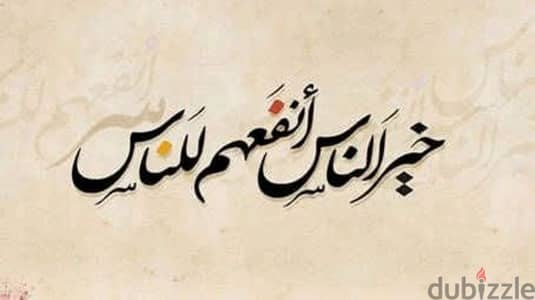 خير الناس أنفعهم للناس
dubizzle